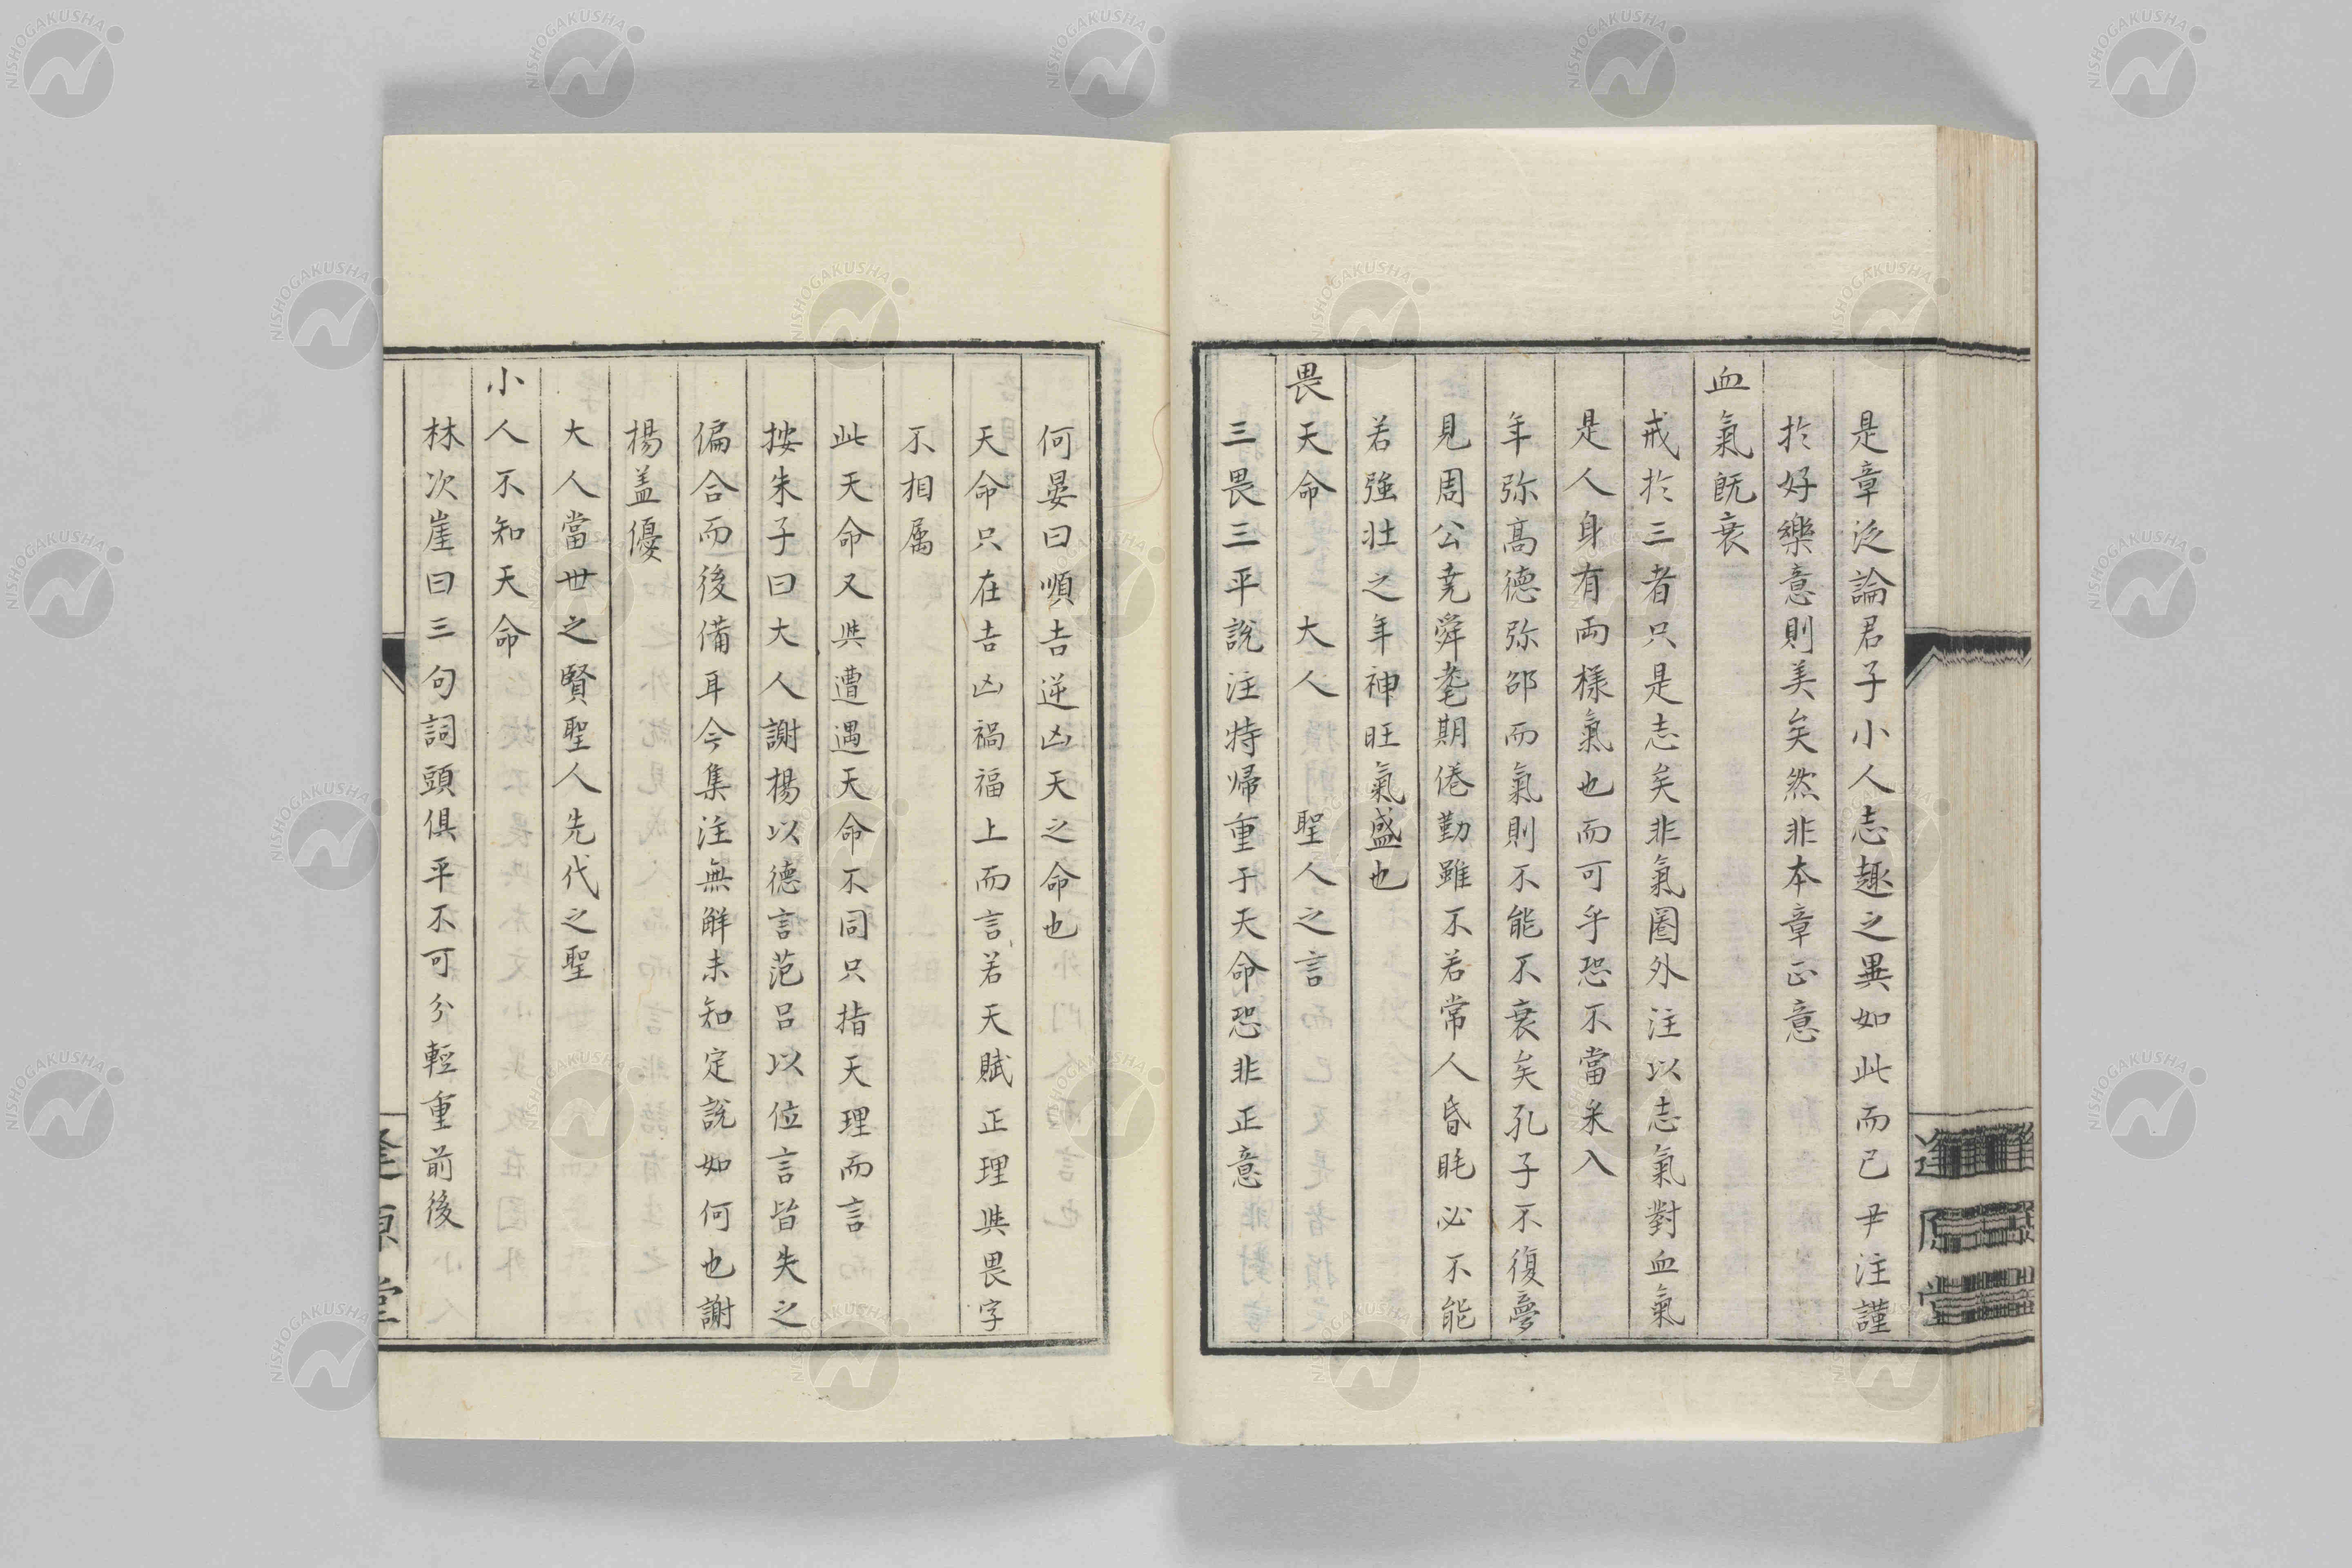 是章泛論君子小人志趣之異如此而已尹注謹
於好樂意則美矣然非本章正意
血氣既衰
戒於三者只是志矣非氣圏外注以志氣對血氣
是人身有両樣氣也而可乎恐不當采入
年弥高德弥邵而氣則不能不衰矣孔子不復夢
見周公尭舜耄期倦勤雖不若常人昏眊必不能
若強壮之年神旺氣盛也
畏天命　大人　聖人之言
三畏三平說注特帰重于天命恐非正意
逢原堂
何晏曰順吉逆凶天之命也
天命只在吉凶禍福上而言若天賦正理與畏字
不相属
此天命又與遭遇天命不同只指天理而言
按朱子曰大人謝楊以德言范呂以位言皆失之
偏合而後備耳今集注無解未知定說如何也謝
楊盖優
大人當世之賢聖人先代之聖
小人不知天命
林次崖曰三句詞頭俱平不可分輕重前後
逢原堂